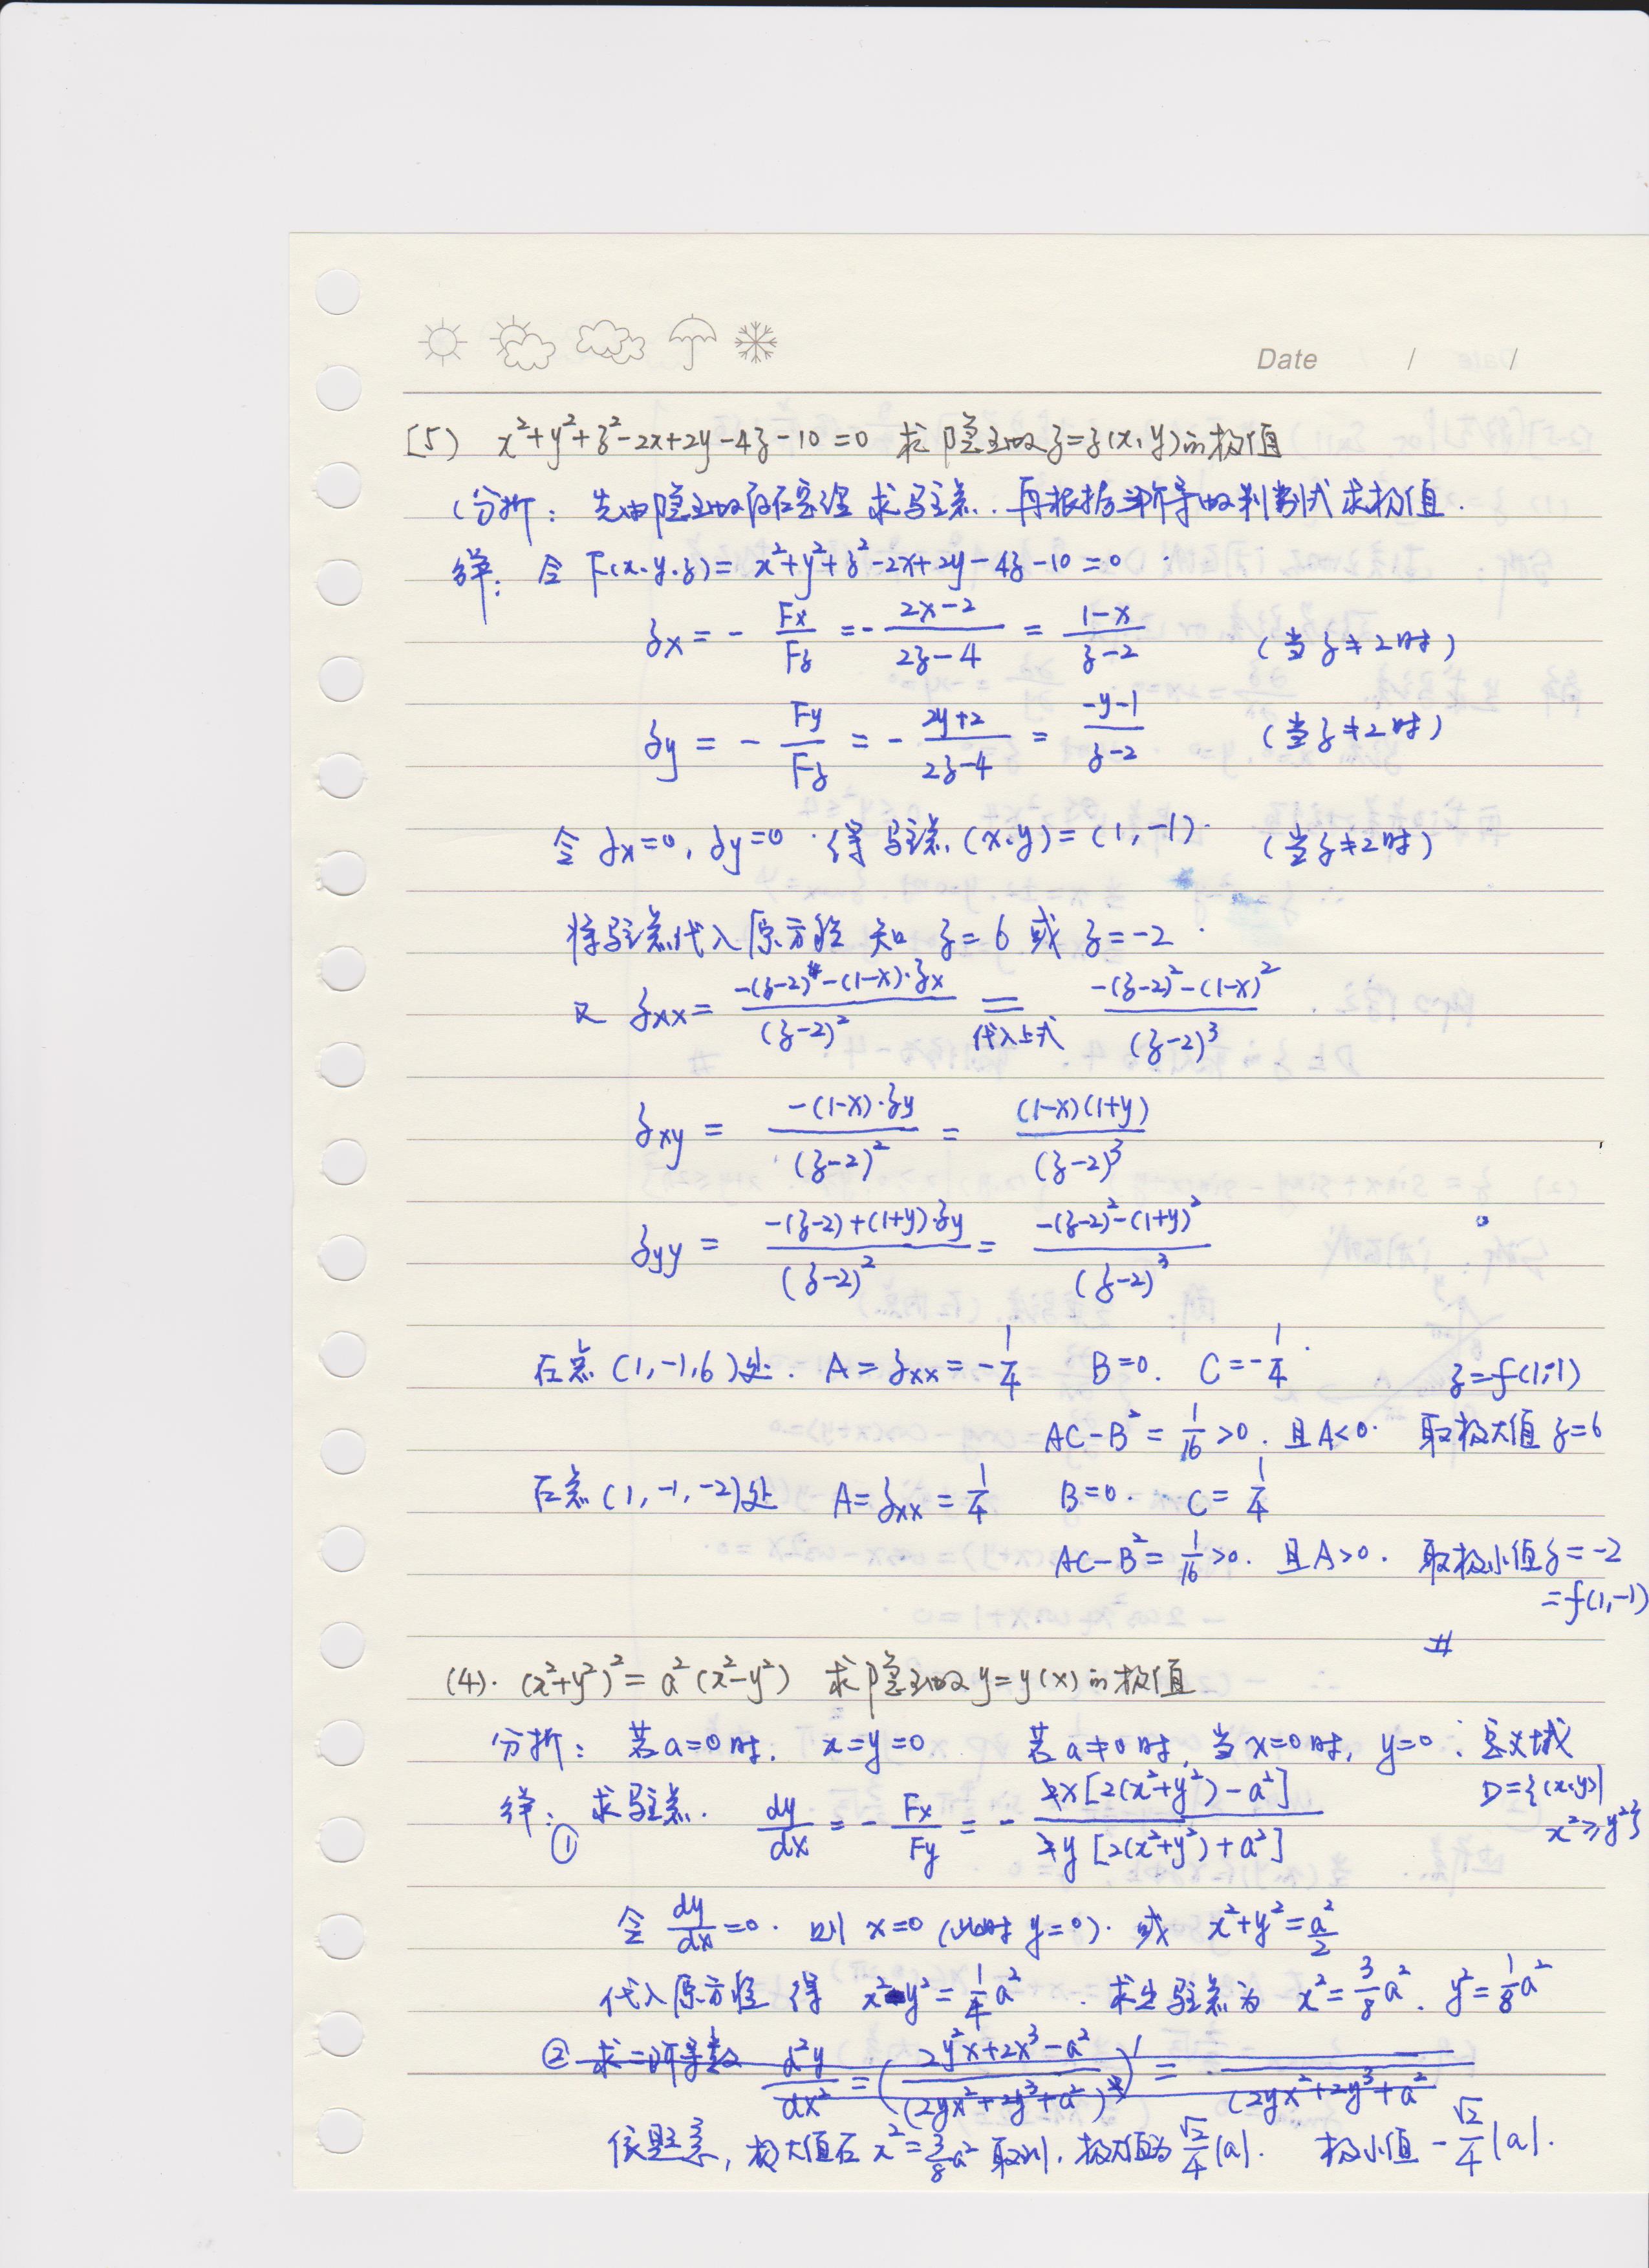 Date / /
(5) x²+y²+z²-2x+2y-4z-10=0 求隐函数z=z(x,y)的极值
(分析：先由隐函数存在定理求驻点.再根据二阶导的判别式求极值.
解：令F(x.y.z)=x²+y²+z²-2x+2y-4z-10=0.
zx = - Fx/Fz = - (2x-2)/(2z-4) = (1-x)/(z-2) (当z≠2时)
zy = - Fy/Fz = - (2y+2)/(2z-4) = (-y-1)/(z-2) (当z≠2时)
令zx=0, zy=0.得驻点(x.y)=(1,-1). (当z≠2时)
将驻点代入原方程知 z=6 或 z=-2.
又 zxx = (-(z-2)-(1-x)·zx)/(z-2)² = 代入上式 (-(z-2)²-(1-x)²)/(z-2)³
zxy = (-(1-x)·zy)/(z-2)² = ((1-x)(1+y))/(z-2)³
zyy = (-(z-2)+(1+y)·zy)/(z-2)² = (-(z-2)²-(1+y)²)/(z-2)³
在点(1,-1,6)处. A=zxx=-1/4 B=0. C=-1/4. z=f(1,-1)
AC-B²=1/16>0.且A<0. 取极大值z=6
在点(1,-1,-2)处 A=zxx=1/4 B=0. C=1/4
AC-B²=1/16>0.且A>0. 取极小值z=-2
=f(1,-1)
#
(4). (x²+y²)²=a²(x²-y²) 求隐函数y=y(x)的极值
分析：若a=0时, x=y=0 若a≠0时,当x=0时, y=0 ∴定义域
D={(x.y)|
x²≥y²}
解：① 求驻点. dy/dx = - Fx/Fy = - x[2(x²+y²)-a²]/y[2(x²+y²)+a²]
令 dy/dx=0. 则 x=0 (此时y=0).或 x²+y²=a²/2
代入原方程得 x²-y²=1/4a². 求出驻点为 x²=3/8a². y²=1/8a²
② 求二阶导数 d²y/dx² = ((2y²x+2x³-a²)/(2yx²+2y³+a²))' = /(2yx²+2y³+a²
依题意,极大值在x²=3/8a²取到.极大值为√2/4|a|. 极小值-√2/4|a|.